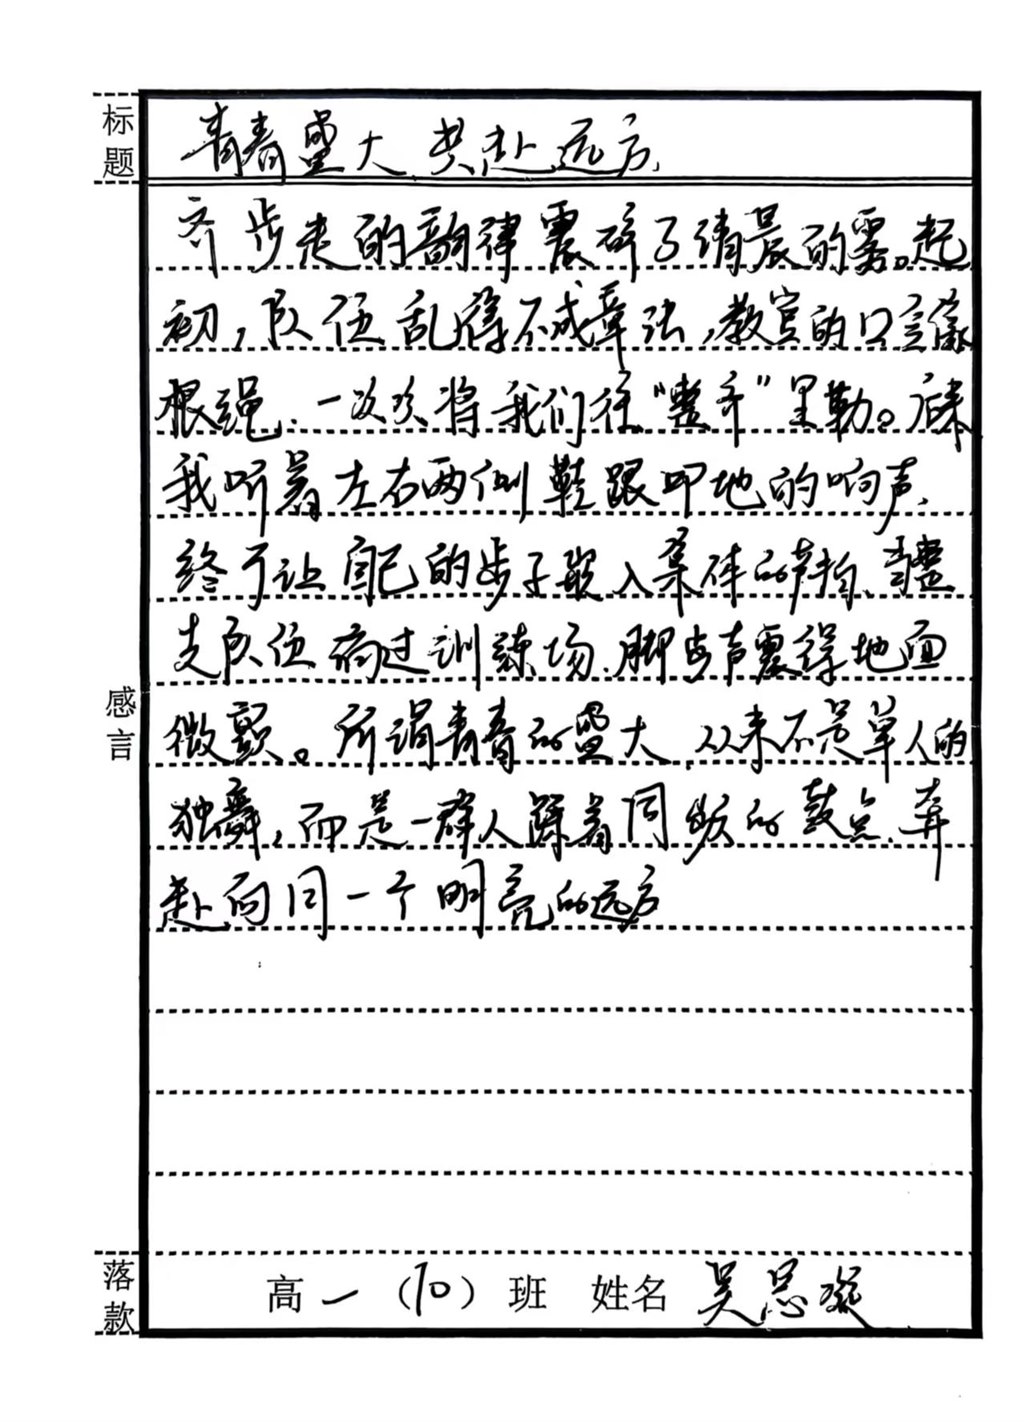 标题
青春盛大,共赴远方
齐步走的韵律震碎了清晨的雾。起
初,队伍乱得不成章法,教官的口令像
根绳,一次次将我们往“整齐”里勒。后来
我听着左右两侧鞋跟叩地的响声,
终于让自己的步子嵌入集体的声拍,当整
支队伍齐过训练场,脚步声震得地面
微颤。所谓青春的盛大,从来不是单人的
独舞,而是一群人踩着同频的鼓点,奔
赴向同一个明亮的远方
感言
落款
高一(10)班 姓名 吴思凝